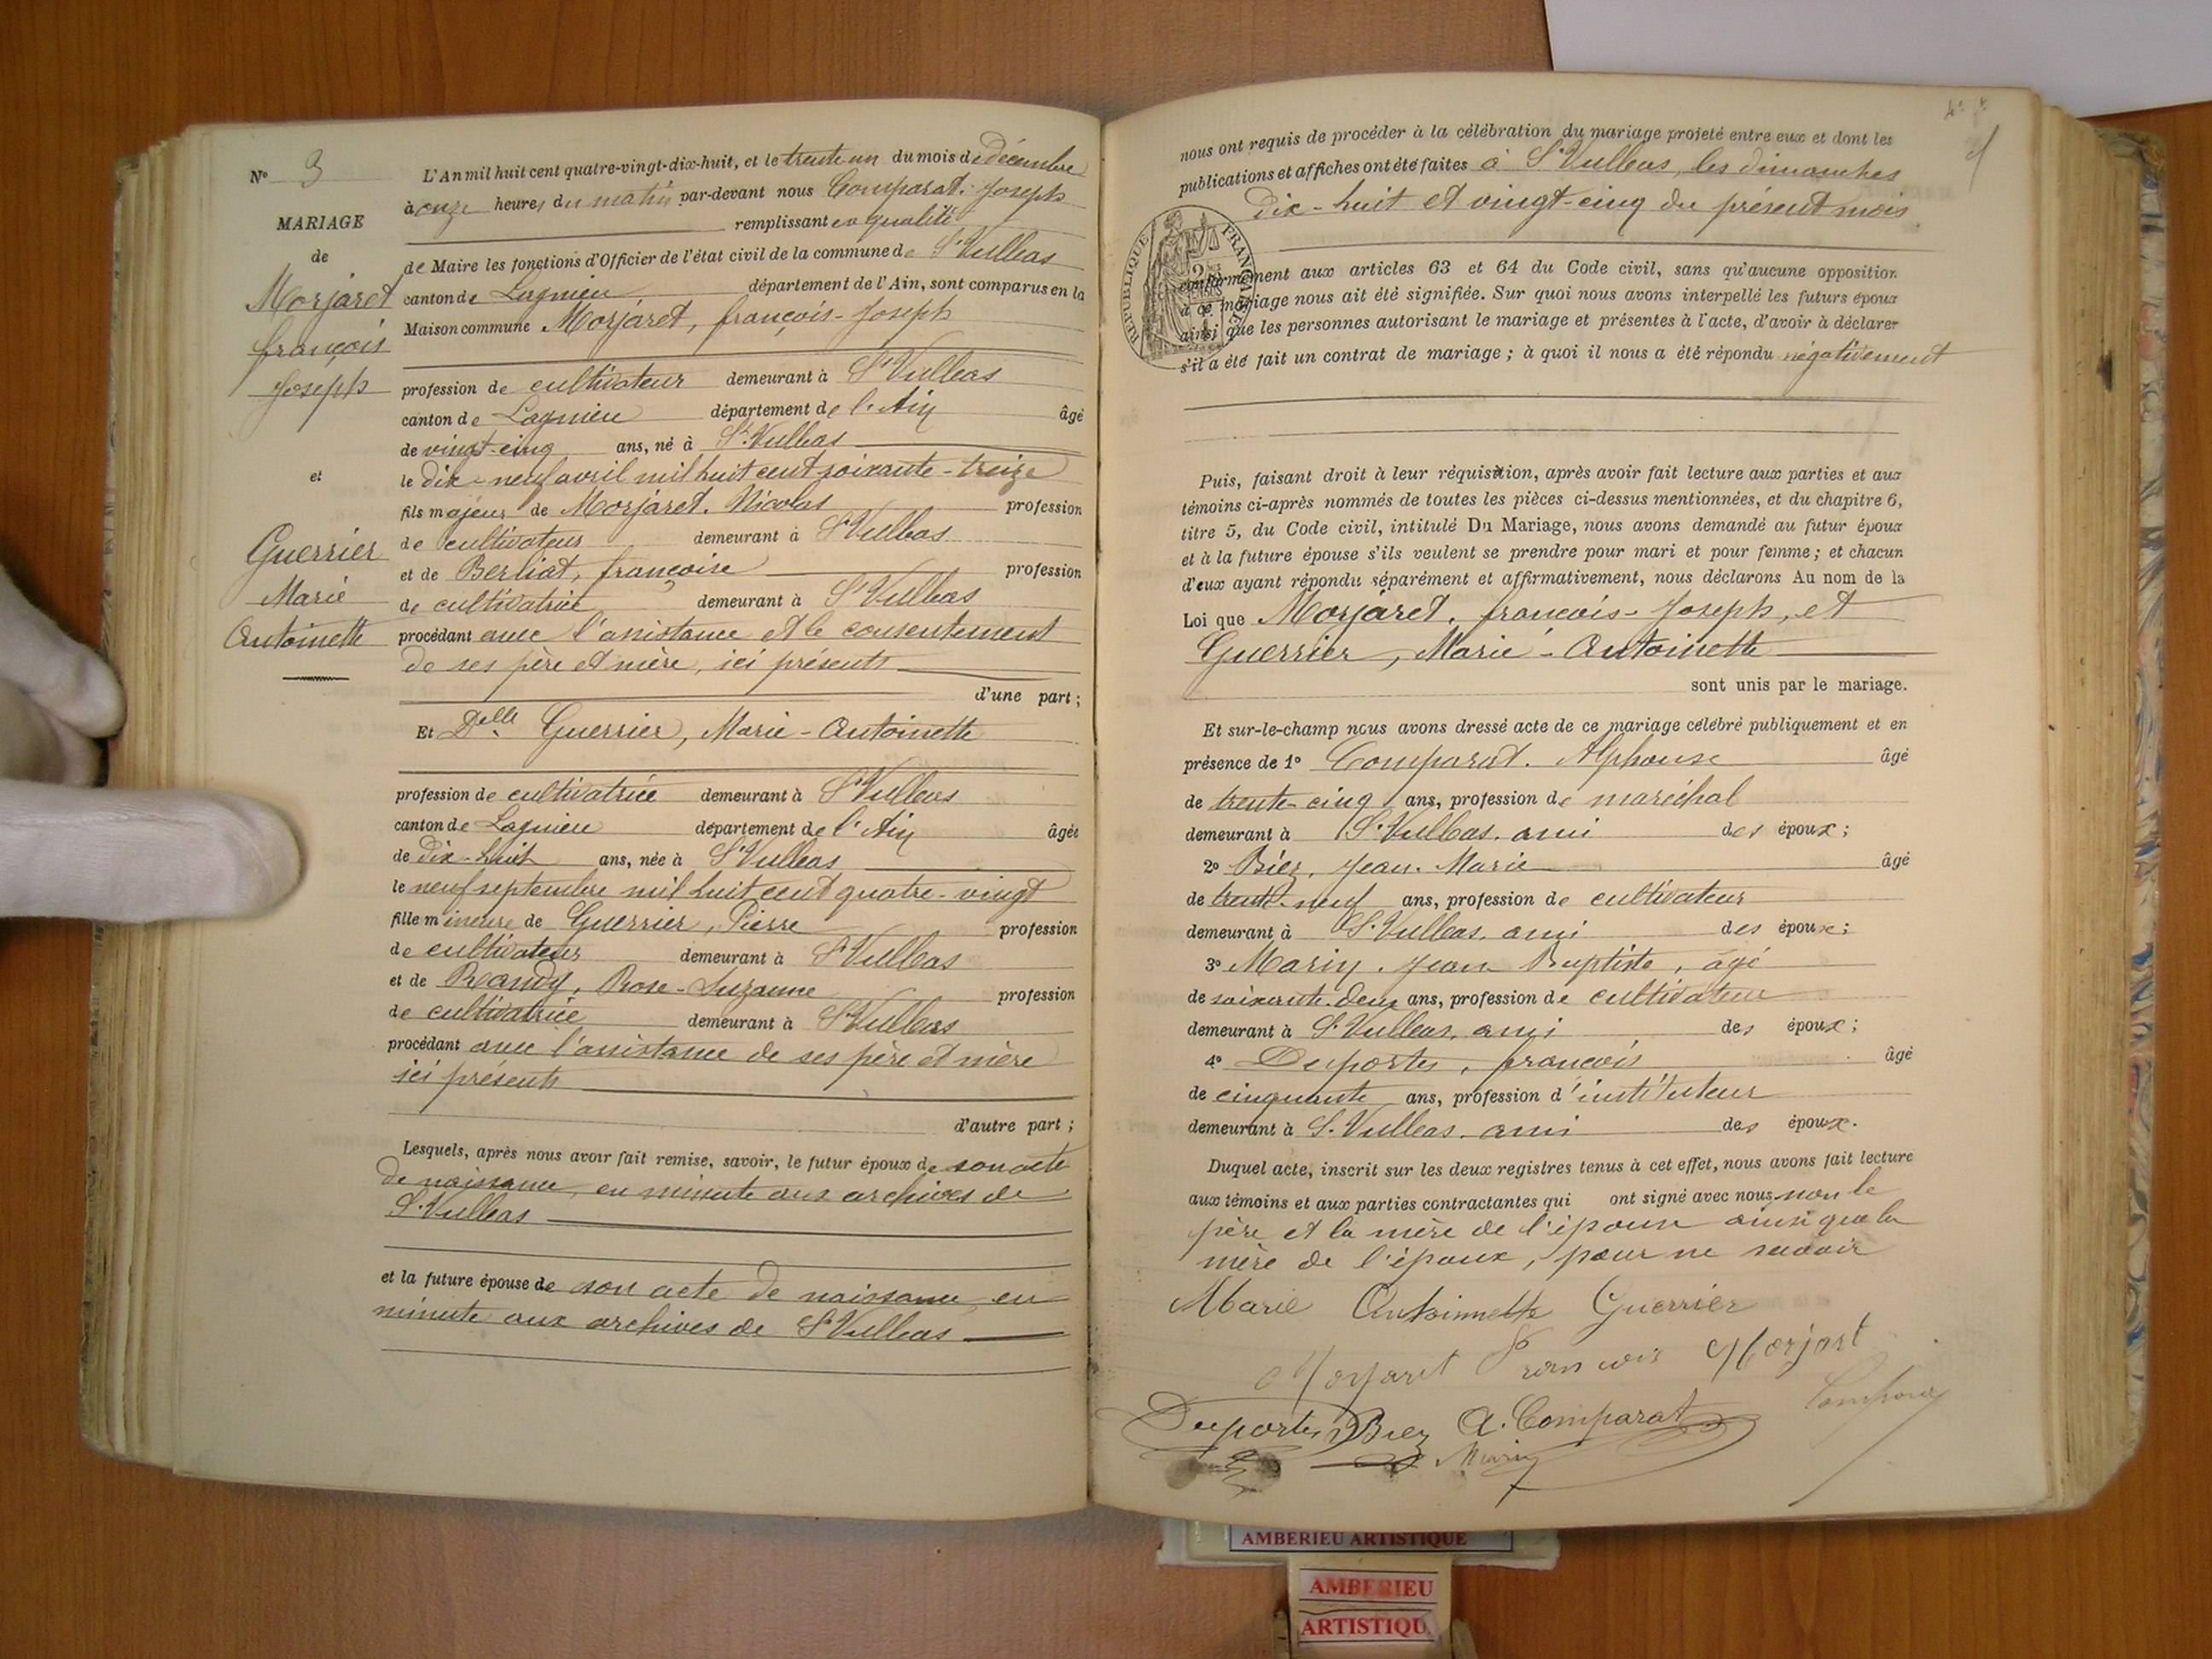 N° 3
MARIAGE
de
Morjaret
françois
Joseph
et
Guerrier
Marie
Antoinette
L'An mil huit cent quatre-vingt-dix-huit, et le trente un du mois de décembre
à onze heures du matin par-devant nous Comparat. Joseph
remplissant en qualité
de Maire les fonctions d'Officier de l'état civil de la commune de St Vulbas
canton de Lagnieu département de l'Ain, sont comparus en la
Maison commune Morjaret, françois-Joseph
profession de cultivateur demeurant à St Vulbas
canton de Lagnieu département de l'Ain âgé
de vingt-cinq ans, né à St Vulbas
le dix-neuf avril mil huit cent soixante-treize
fils majeur de Morjaret. Nicolas profession
de cultivateur demeurant à St Vulbas
et de Berliat, françoise profession
de cultivatrice demeurant à St Vulbas
procédant avec l'assistance et le consentement
de ses père et mère, ici présents
d'une part;
Et Delle Guerrier, Marie-Antoinette
profession de cultivatrice demeurant à St Vulbas
canton de Lagnieu département de l'Ain âgée
de dix-huit ans, née à St Vulbas
le neuf septembre mil huit cent quatre-vingt
fille mineure de Guerrier, Pierre profession
de cultivateur demeurant à St Vulbas
et de Reandy, Rose-Suzanne profession
de cultivatrice demeurant à St Vulbas
procédant avec l'assistance de ses père et mère
ici présents
d'autre part;
Lesquels, après nous avoir fait remise, savoir, le futur époux de son acte
de naissance, en minute aux archives de
St Vulbas
et la future épouse de son acte de naissance en
minute aux archives de St Vulbas
nous ont requis de procéder à la célébration du mariage projeté entre eux et dont les
publications et affiches ont été faites à St Vulbas, les dimanches
dix-huit et vingt-cinq du présent mois
RÉPUBLIQUE FRANÇAISE
conformément aux articles 63 et 64 du Code civil, sans qu'aucune opposition
à ce mariage nous ait été signifiée. Sur quoi nous avons interpellé les futurs époux
ainsi que les personnes autorisant le mariage et présentes à l'acte, d'avoir à déclarer
s'il a été fait un contrat de mariage; à quoi il nous a été répondu négativement
Puis, faisant droit à leur réquisition, après avoir fait lecture aux parties et aux
témoins ci-après nommés de toutes les pièces ci-dessus mentionnées, et du chapitre 6,
titre 5, du Code civil, intitulé Du Mariage, nous avons demandé au futur époux
et à la future épouse s'ils veulent se prendre pour mari et pour femme; et chacun
d'eux ayant répondu séparément et affirmativement, nous déclarons Au nom de la
Loi que Morjaret, françois-Joseph, et
Guerrier, Marie-Antoinette
sont unis par le mariage.
Et sur-le-champ nous avons dressé acte de ce mariage célébré publiquement et en
présence de 1° Comparat. Alphonse âgé
de trente-cinq ans, profession de maréchal
demeurant à St Vulbas. ami des époux;
2° Biez, Jean. Marie âgé
de trente-neuf ans, profession de cultivateur
demeurant à St Vulbas. ami des époux;
3° Marin. Jean Baptiste, âgé
de soixante-deux ans, profession de cultivateur
demeurant à St Vulbas. ami des époux;
4° Duportes, françois âgé
de cinquante ans, profession d'instituteur
demeurant à St Vulbas. ami des époux.
Duquel acte, inscrit sur les deux registres tenus à cet effet, nous avons fait lecture
aux témoins et aux parties contractantes qui ont signé avec nous, non le
père et la mère de l'épouse ainsi que la
mère de l'époux, pour ne savoir
Marie Antoinnette Guerrier
Morjaret François Morjart
Duportes Biez A. Comparat
Marin
AMBERIEU ARTISTIQUE
AMBERIEU
ARTISTIQU